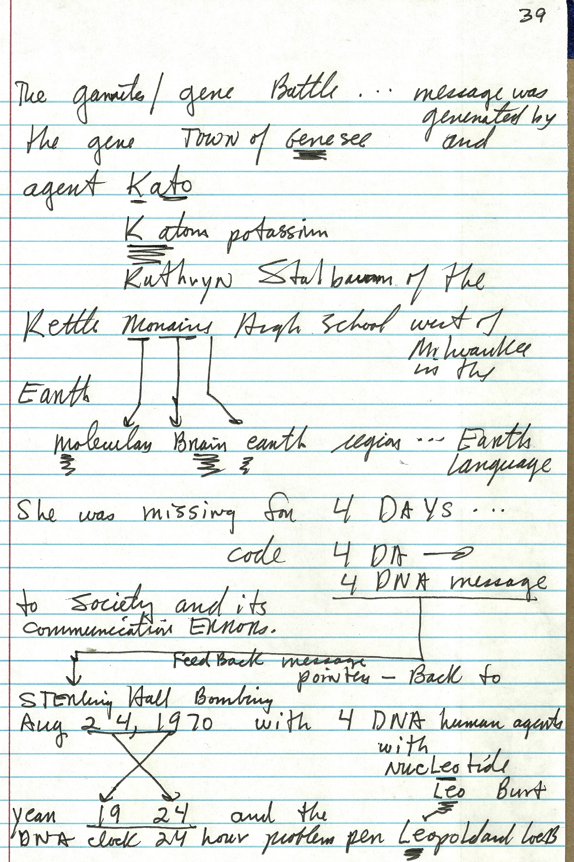 39
The gamete/gene Battle ... message was
generated by
the gene TOWN of Genesee and
agent Kato
K atom potassium
Kathryn Stalbaum of the
Kettle Morains High School west of
Milwaukee
in the
Earth
Molecular Brain earth region ... Earth
language
She was missing for 4 DAYS ...
code 4 DA →
4 DNA message
to Society and its
Communication ERRORS.
FeedBack message
pointer – Back to
STERling Hall Bombing
Aug 24, 1970 with 4 DNA human agents
with
Nucleotide
Leo Burt
year 19 24 and the
DNA clock 24 hour problem pen Leopold and LoeB